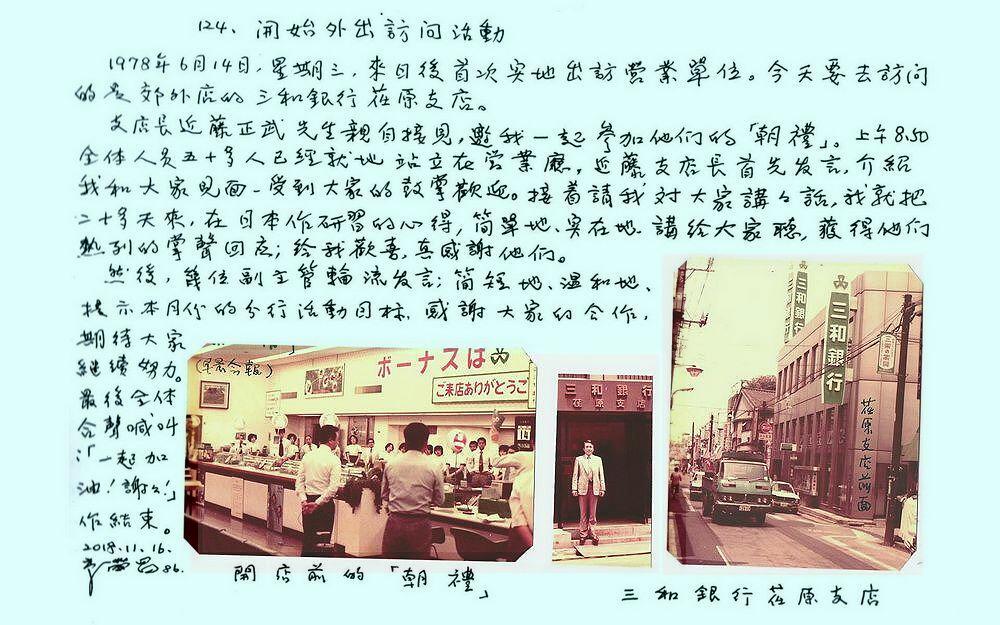 124、開始外出訪问活動
1978年6月14日,星期三,來日後首次实地出訪营業單位。今天要去訪问
的是郊外店的三和銀行荏原支店。
支店長近藤正武先生親自接見,邀我一起参加他们的「朝禮」。上午8.50
全体人员五十多人已經就地站立在营業廳,近藤支店長首先发言,介紹
我和大家見面-受到大家的鼓掌歡迎。接着請我对大家講々話,我就把
二十多天來,在日本作研習的心得,簡單地、实在地講給大家聽,獲得他们
热列的掌聲回应;给我歡喜,真感謝他们。
然後,幾位副主管輪流发言;简短地、温和地、
提示本月份的分行活動目标,感謝大家的合作,
期待大家
継續努力。
最後全体
合聲喊叫
:「一起加
油!謝々!」
作結束。
2018.11.16.
86.
ボーナスは
ご来店ありがとうご
14
三和銀行
荏原支店
三和銀行
三和銀行
荏原支店前面
開店前的「朝禮」
三和銀行荏原支店